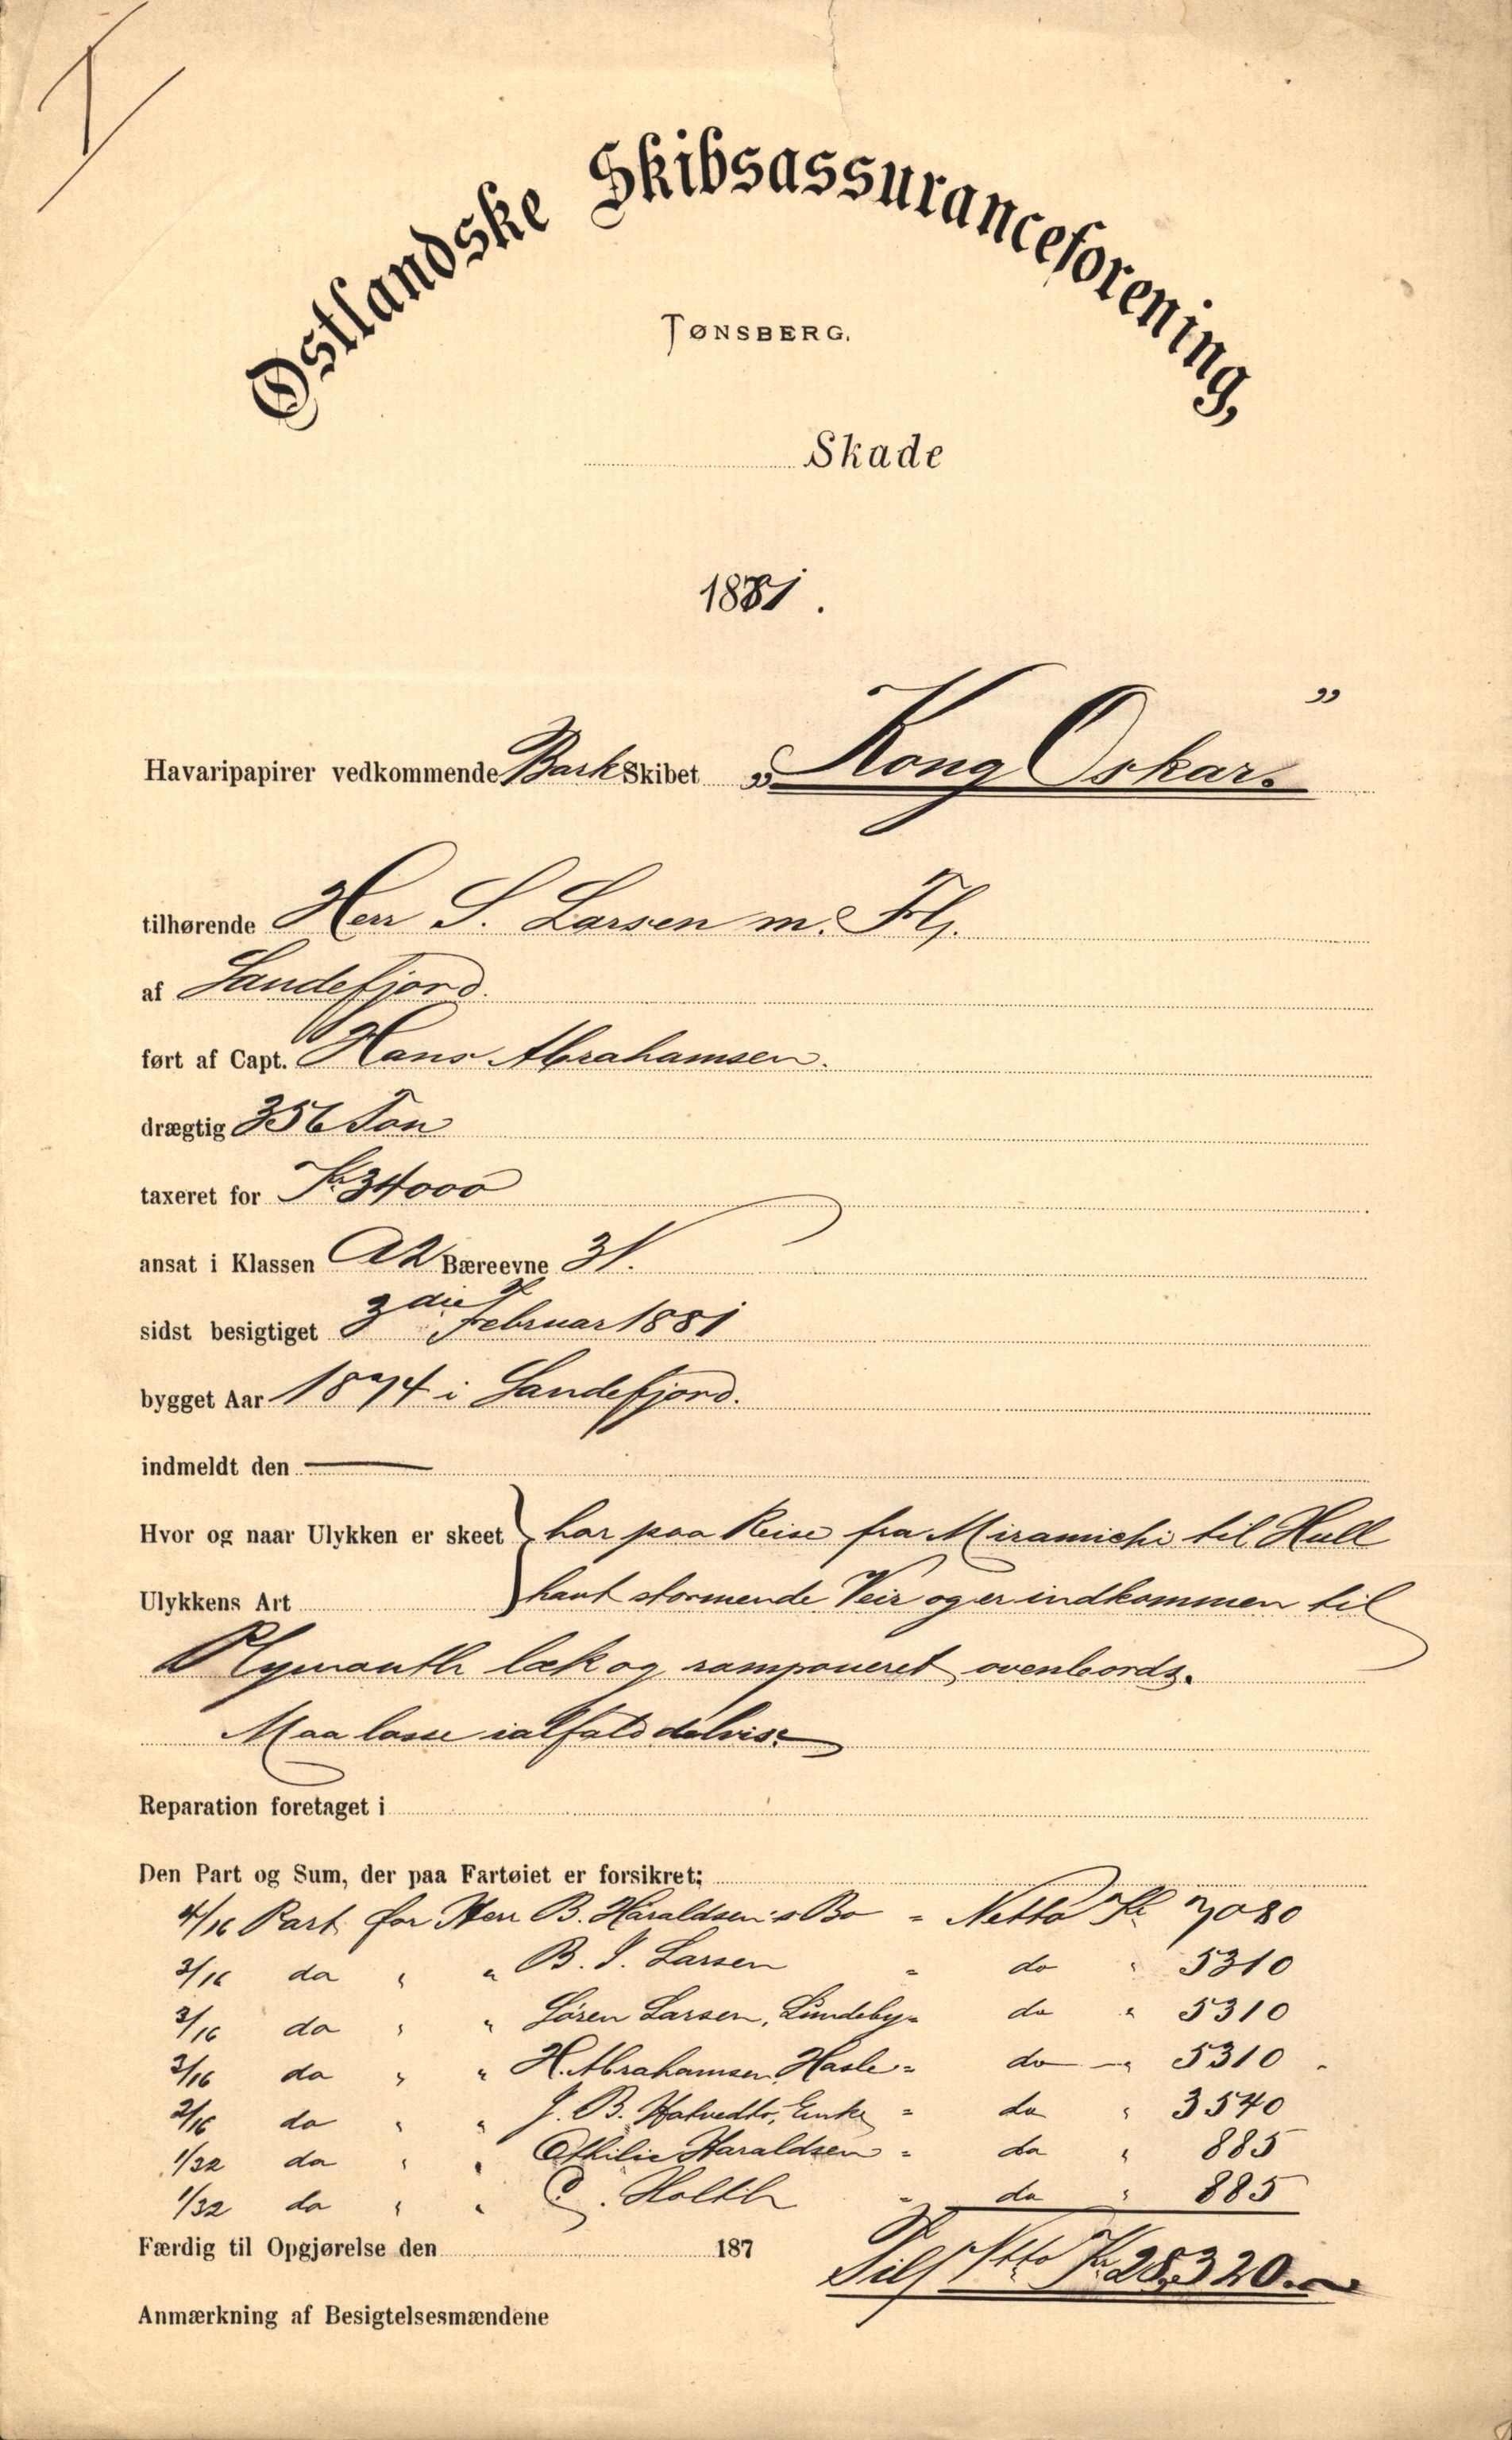 Østlandske Skibsassuranceforening,
TØNSBERG.
Skade
1881.
Havaripapirer vedkommende Bark Skibet „Kong Oskar.”
tilhørende Herr S. Larsen m. Fl.
af Sandefjord.
ført af Capt. Hans Abrahamsen.
drægtig 356 Ton
taxeret for Kr 34000
ansat i Klassen A2 Bæreevne 31.
sidst besigtiget 3die Februar 1881
bygget Aar 1874 i Sandefjord.
indmeldt den —
Hvor og naar Ulykken er skeet } har paa Reise fra Miramichi til Hull
Ulykkens Art } havt stormende Veir og er indkommen til
Plymouth læk og ramponeret ovenbords.
Maa losse ialfald delvis.
Reparation foretaget i
Den Part og Sum, der paa Fartøiet er forsikret;
4/16 Part for Herr B. Haraldsen's Bo " Netto Kr 7080
3/16 do " " B. J. Larsen " do " 5310
3/16 do " " Søren Larsen, Lindeby " do " 5310
3/16 do " " H. Abrahamsen, Hasle " do " 5310
2/16 do " " J. B. Enke " do " 3540
1/32 do " " Othilie Haraldsen " do " 885
1/32 do " " C. Holth " do " 885
Færdig til Opgjørelse den 187
Tils Ntto Kr 28,320.
Anmærkning af Besigtelsesmændene